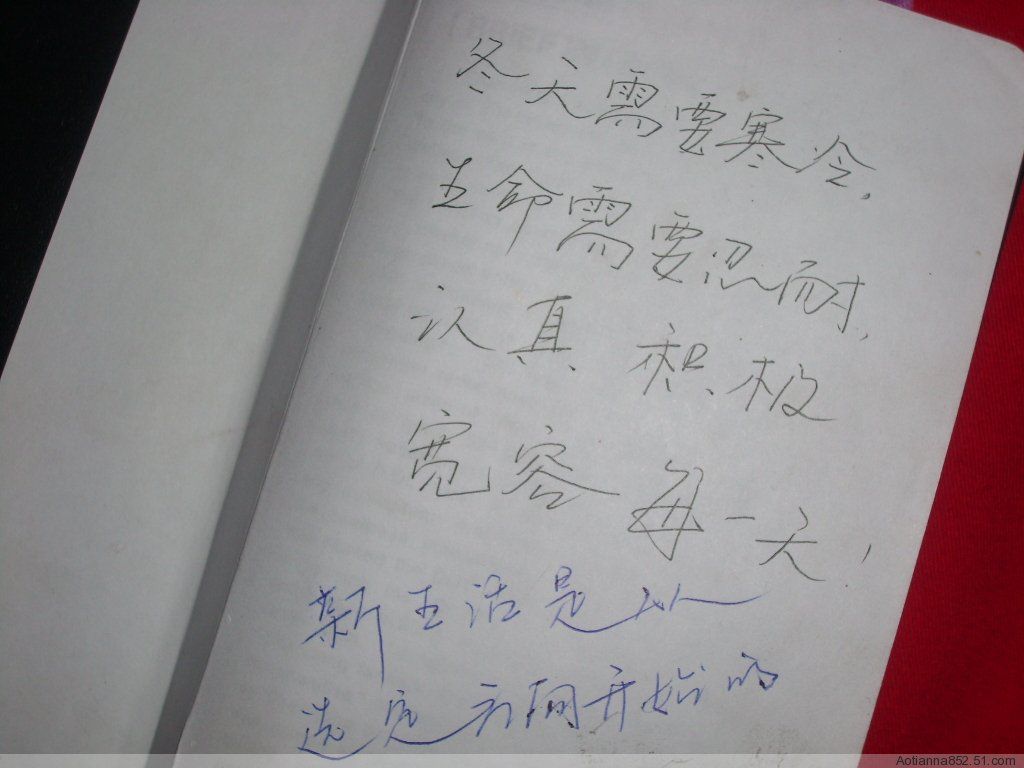 冬天需要寒冷,
生命需要忍耐,
认真 积极
宽容 每一天!
新生活是从
选定方向开始的
Aotianna852.51.com